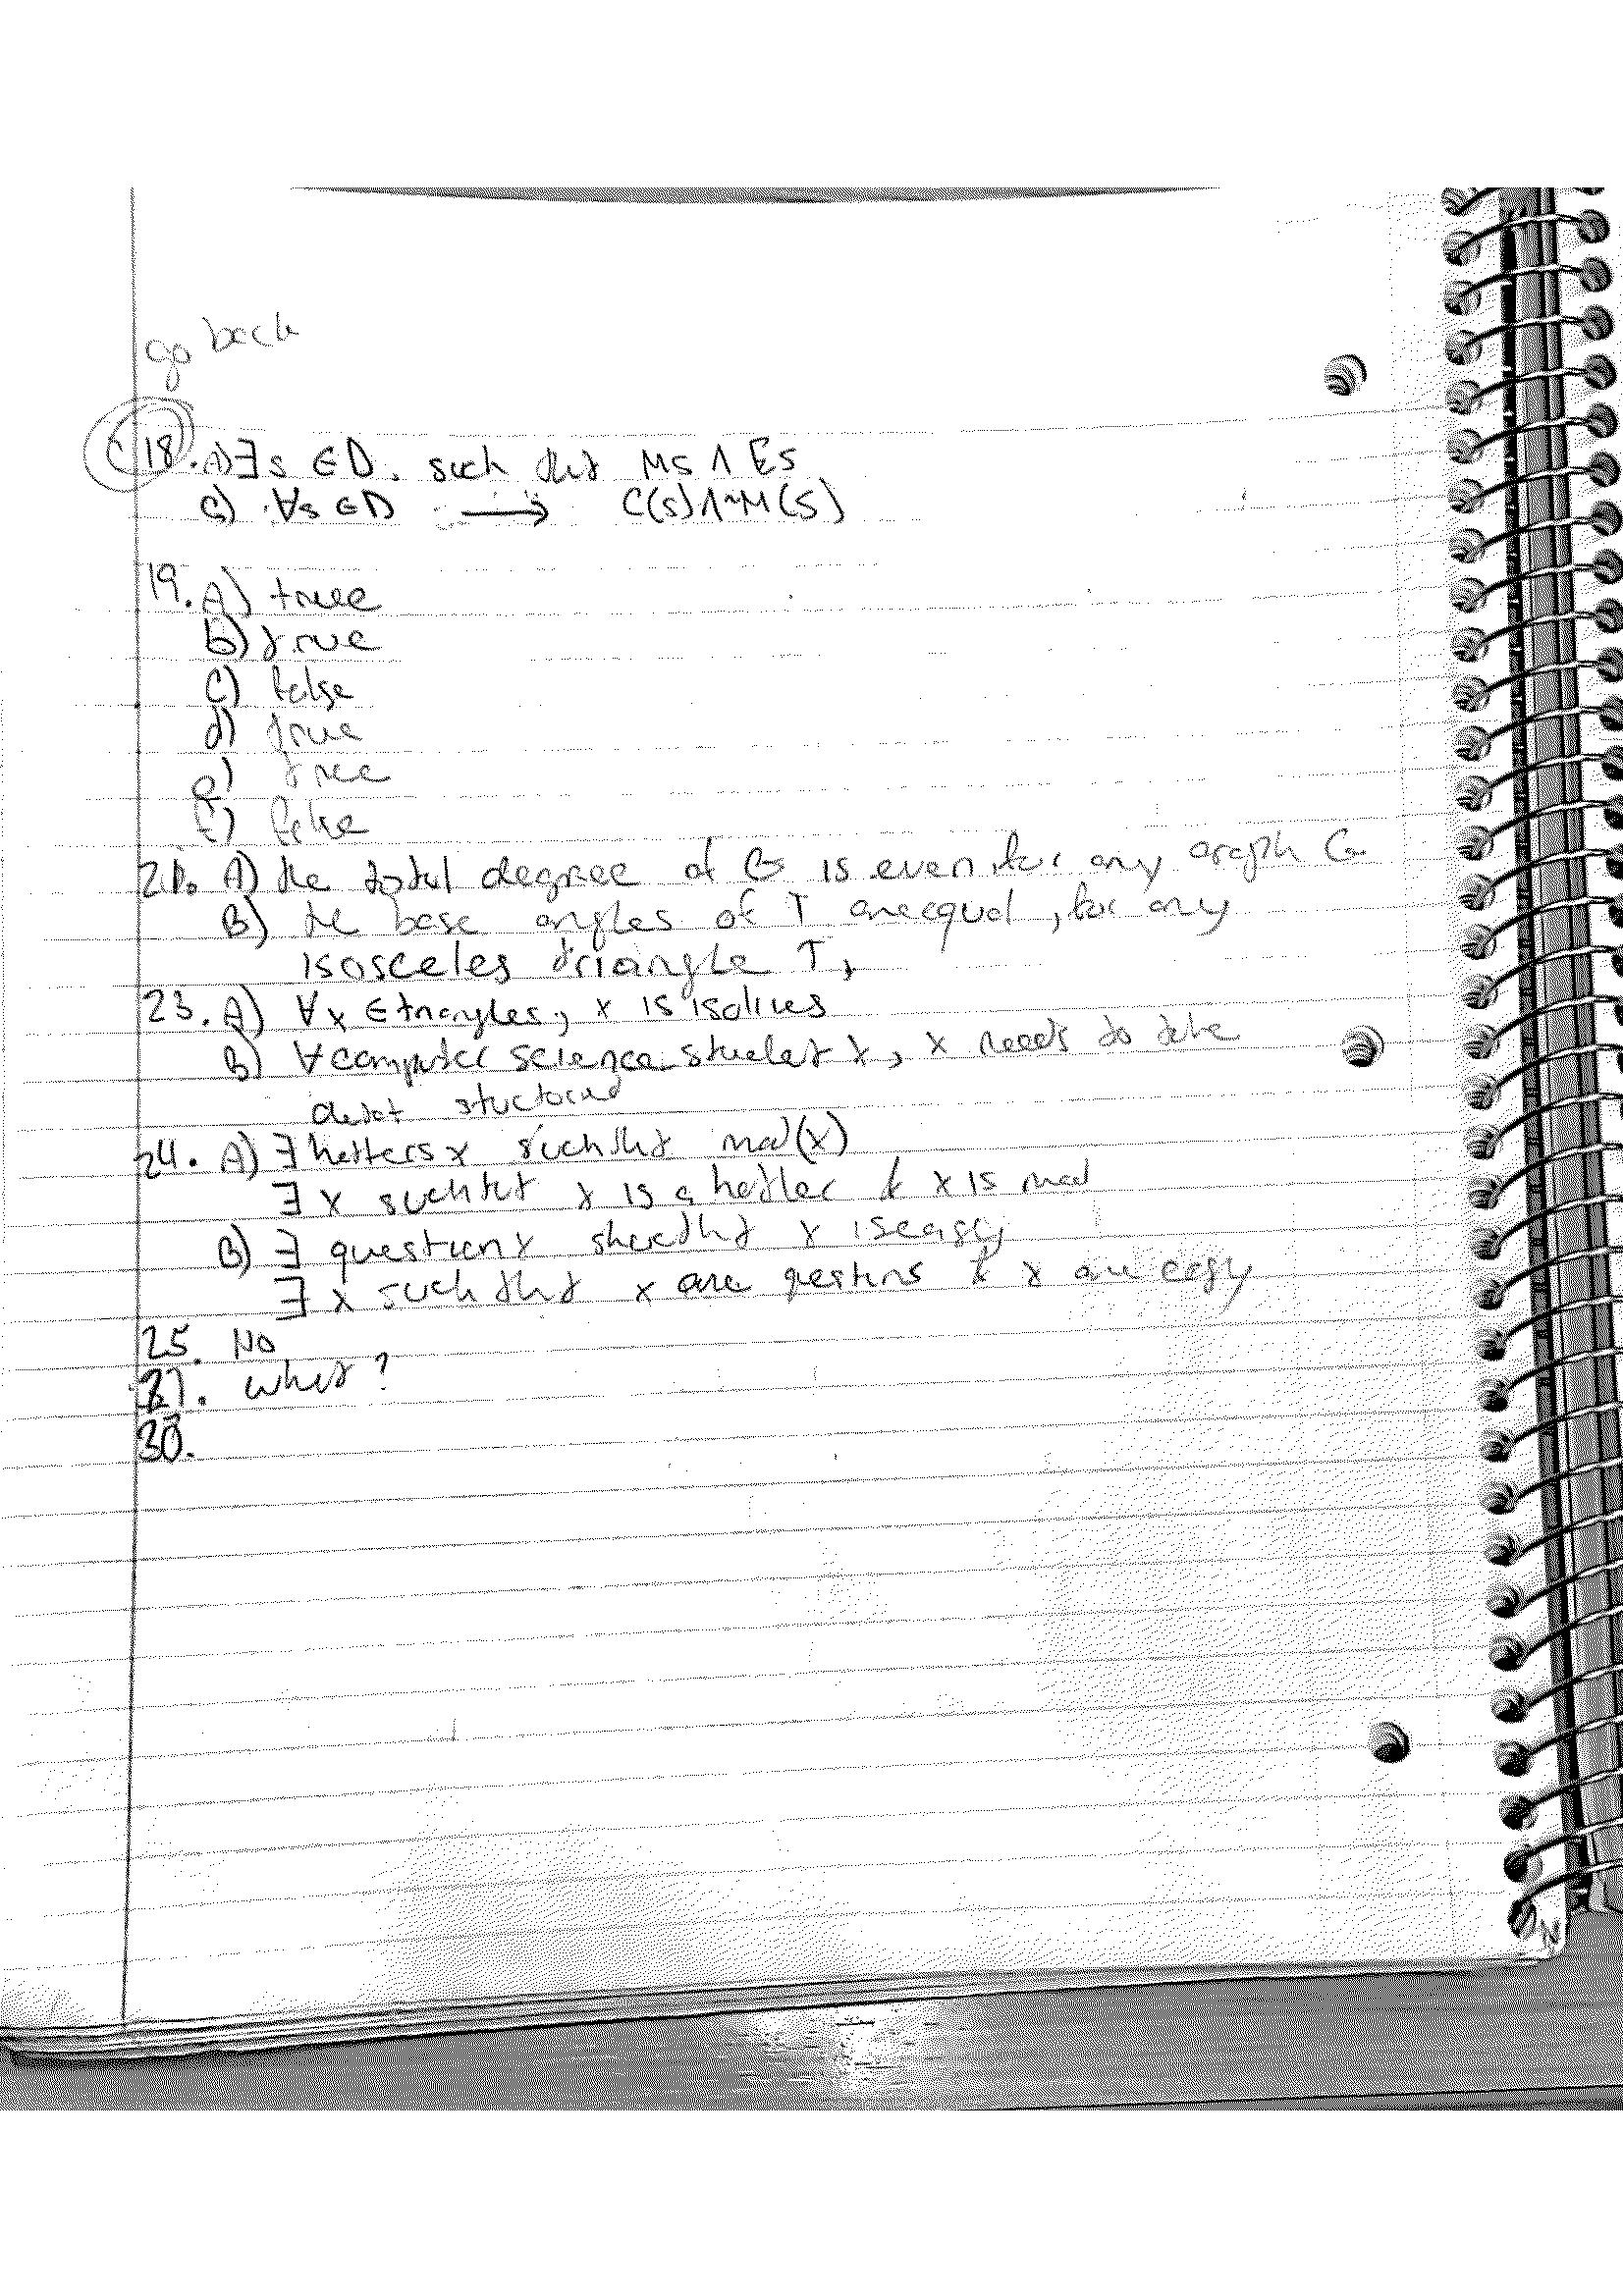 go back
18. A) ∃s ∈ D. such that Ms ∧ Es
c) ∀s ∈ D ⟶ C(s) ∧ ~M(s)
19. A) true
b) true
c) false
d) true
e) true
f) false
21. A) the total degree of G is even, for any graph G
B) the base angles of T are equal, for any
isosceles triangle T,
23. A) ∀x ∈ triangles, x is
B) ∀ computer science student x, x needs to take
24. A) ∃ hatters x such that mad(x)
∃ x such that x is a hatter & x is mad
B) ∃ question x such that x is easy
∃ x such that x are questions & x are easy
25. No
27. what?
30.